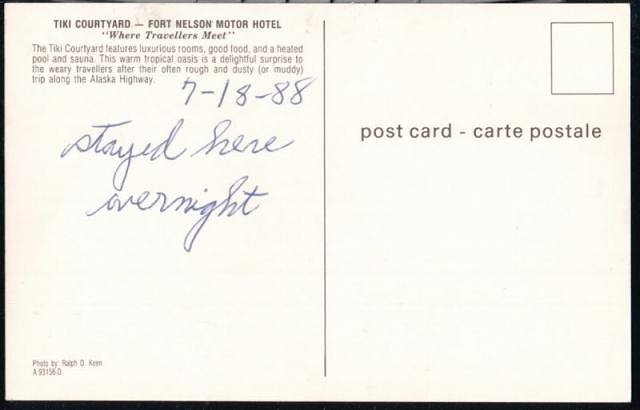 TIKI COURTYARD — FORT NELSON MOTOR HOTEL
"Where Travellers Meet"
The Tiki Courtyard features luxurious rooms, good food, and a heated
pool and sauna. This warm tropical oasis is a delightful surprise to
the weary travellers after their often rough and dusty (or muddy)
trip along the Alaska Highway.
7-18-88
stayed here
overnight
Photo by Ralph D. Keen
A 93156-D
post card - carte postale